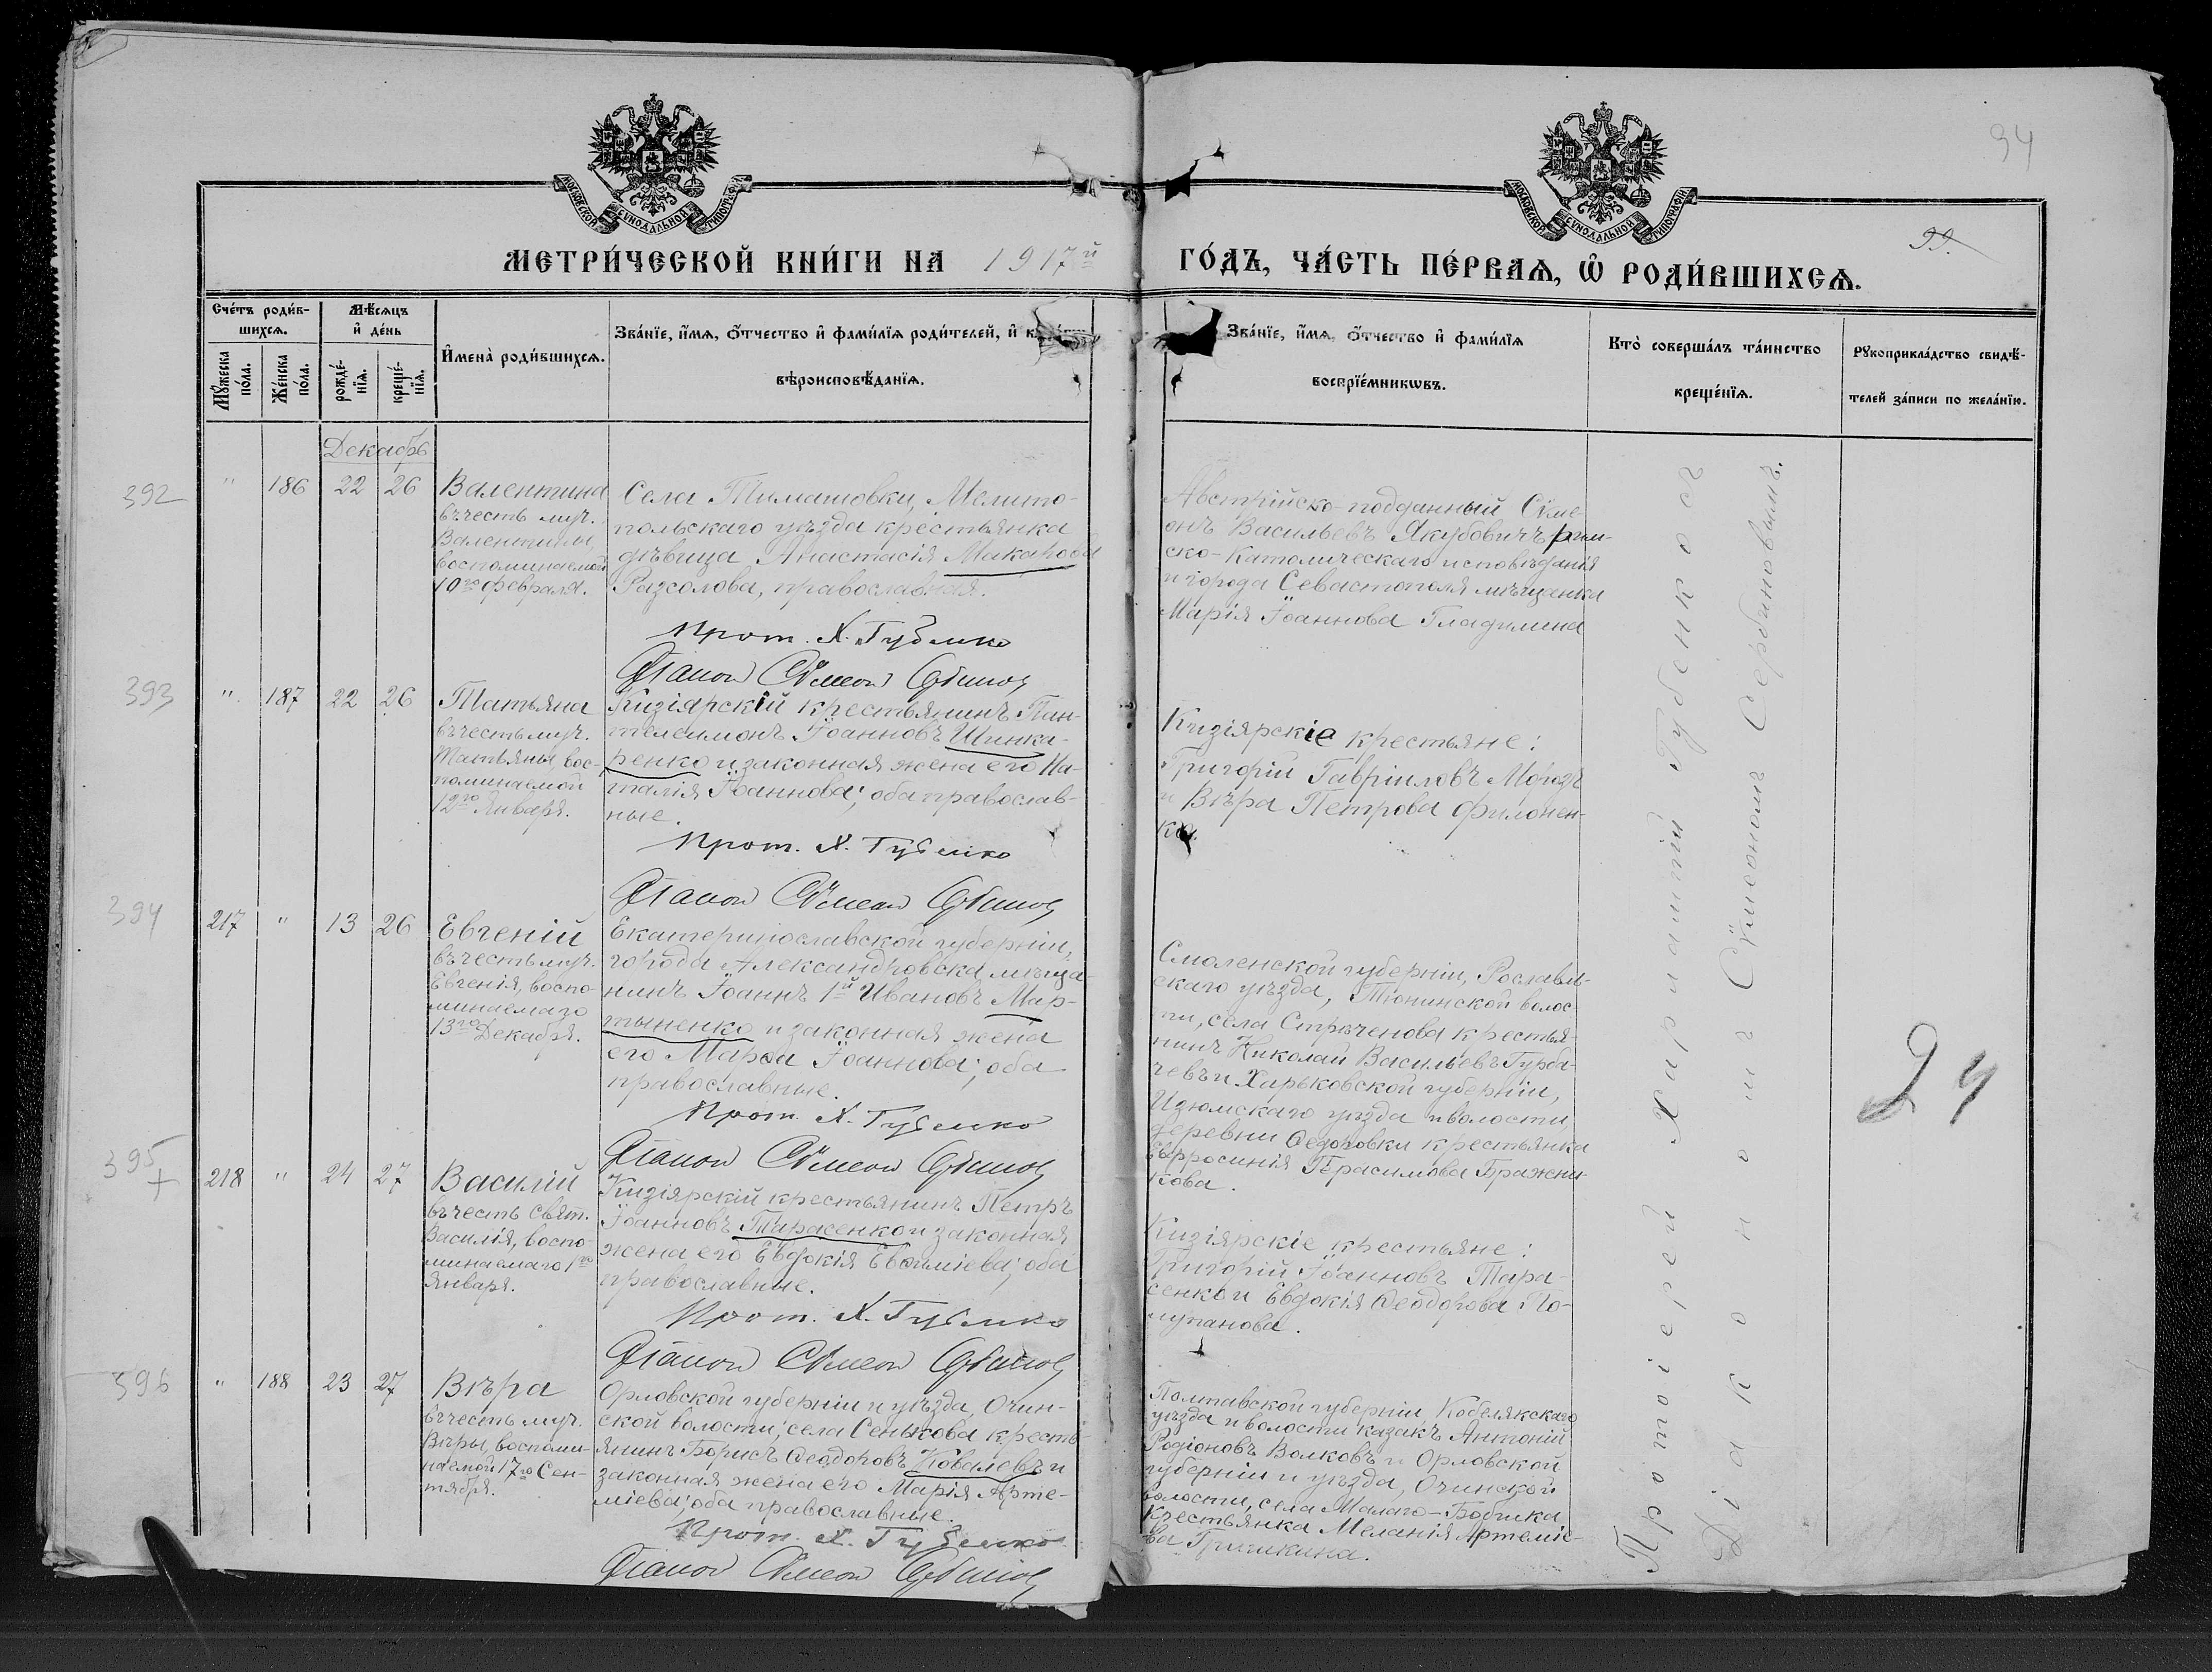 94
99.
МОСКОВСКОЙ СѴНОДАЛЬНОЙ ТИПОГРАФІИ
МОСКОВСКОЙ СѴНОДАЛЬНОЙ ТИПОГРАФІИ
МЕТРИ́ЧЕСКОЙ КНИ́ГИ НА 1917й
ГО́ДЪ, ЧА́СТЬ ПЕ́РВАѦ, Ѽ РОДИ́ВШИХСѦ.
Сче́тъ роди́в-
шихсѧ.
Мꙋ́жеска
по́ла.
Же́нска
по́ла.
Мѣ́сѧцъ
и҆ де́нь
рожде́-
нїѧ.
креще́-
нїѧ.
И҆мена̀ роди́вшихсѧ.
Зва́нїе, и҆́мѧ, ѻ҆́тчество и҆ фами́лїѧ роди́телей, и҆
вѣроисповѣ́данїѧ.
Зва́нїе, и҆́мѧ, ѻ҆́тчество и҆ фами́лїѧ
воспрїе́мникѡвъ.
Кто̀ соверша́лъ та́инство
креще́нїѧ.
Рꙋкоприкла́дство свидѣ́-
телей за́писи по жела́нїю.
Декабрь
392
" 186 22 26
Валентина
въ честь муч.
Валентины,
воспоминаемой
10го февраля.
Села Тимашовки, Мелито-
польскаго уѣзда крестьянка
дѣвица Анастасія Макарова
Разсолова, православная.
Прот. Х. Губенко
Діаконъ Сѵмеонъ
Австрійско-подданный Сѵме-
онъ Васильевъ Якубовичъ рим-
ско-католическаго исповѣданія
и города Севастополя мѣщанка
Марія Іоаннова Гладилина
393
" 187 22 26
Татьяна
въ честь муч.
Татьяны, вос-
поминаемой
12го Января.
Кизіярскій крестьянинъ Пан-
телеимонъ Іоанновъ Шинка-
ренко и законная жена его На-
талія Іоаннова; оба православ-
ные.
Прот. Х. Губенко
Діаконъ Сѵмеонъ
Кизіярскіе крестьяне:
Григорій Гавріиловъ Морозъ
и Вѣра Петрова Филонен-
кова.
394
217 " 13 26
Евгеній
въ честь муч.
Евгенія, воспо-
минаемаго
13го Декабря.
Екатеринославской губерніи,
города Александровска, мѣща-
нинъ Іоаннъ 1й Ивановъ Мар-
тыненко и законная жена
его Марѳа Іоаннова; оба
православные.
Прот. Х. Губенко
Діаконъ Сѵмеонъ
Смоленской губерніи, Рославль-
скаго уѣзда, Тюнинской волос-
ти, села Стрѣченова крестья-
нинъ Николай Васильевъ Гурба-
чевъ и Харьковской губерніи,
Изюмскаго уѣзда и волости,
деревни Ѳедоровки крестьянка
Евфросинія Герасимова Бражни-
кова.
395
+
218 " 24 27
Василій
въ честь свят.
Василія, воспо-
минаемаго 1го
Января.
Кизіярскій крестьянинъ Петръ
Іоанновъ Тарасенко и законная
жена его Евдокія Евѳиміева; оба
православные.
Прот. Х. Губенко
Діаконъ Сѵмеонъ
Кизіярскіе крестьяне:
Григорій Іоанновъ Тара-
сенко и Евдокія Ѳеодорова По-
лупанова.
396
" 188 23 27
Вѣра
въ честь муч.
Вѣры, воспоми-
наемой 17го Сен-
тября.
Орловской губерніи и уѣзда, Очин-
ской волости, села Сенькова кресть-
янинъ Борисъ Ѳеодоровъ Ковалевъ и
законная жена его Марія Арте-
міева; оба православные.
Прот. Х. Губенко
Діаконъ Сѵмеонъ
Полтавской губерніи, Кобелякскаго
уѣзда и волости казакъ Антоній
Родіоновъ Волковъ и Орловской
губерніи и уѣзда, Очинской
волости, села Малаго-Бобика
крестьянка Меланія Артеміе-
ва Гришкина.
Протоіерей Харлампій Губенко съ
Діакономъ Сѵмеономъ Сербиновымъ.
24